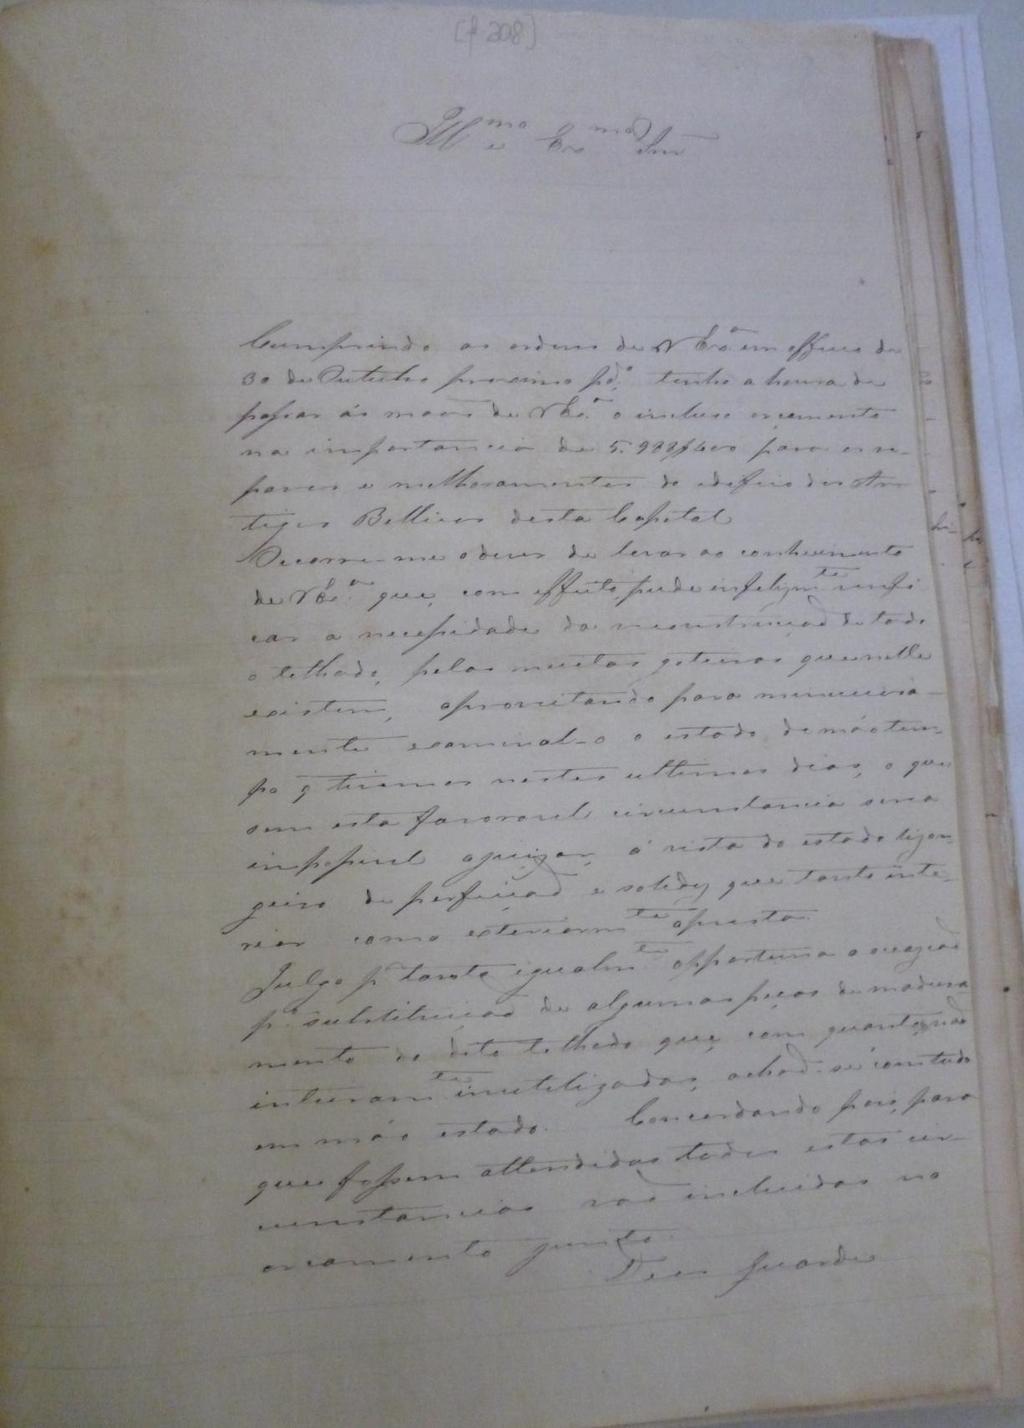 [f 208]
Ill.mo e Ex.mo Snr
Cumprindo as ordens de V Ex.a em officio de
30 de Outubro proximo pd.o, tenho a honra de
passar ás mãos de V Ex.a o incluso orçamento
na importancia de para os re-
paros e melhoramentos do edificio dos Ar
tigos Bellicos desta Capital
Occorre-me o dever de levar ao conhecimento
de V Ex.a que, com effeito, pude infelizm.te verifi
car a necessidade da reconstrucção de todo
o telhado, pelas muitas goteiras que nelle
existem, aproveitando para minuciosa-
mente examinal-o o estado de máo tem-
po q tivemos nestes ultimos dias, o que
sem esta favoravel circumstancia seria
impossivel ajuizar, á vista do estado lizon-
geiro de perfeição e solidez que tanto inte-
rior como exteriorm.te apresta.
Julgo p.r tanto igualm.te opportuna a occazião
p.a substituição de algumas peças do madura
mento do dito telhado que, com quanto não
inteiram.te inutilizadas, achão-se comtudo
em máo estado. Concordando pois, para
que fossem attendidas todas estas cir-
cunstancias vão incluidas no
orçamento junto.
Deus Guarde